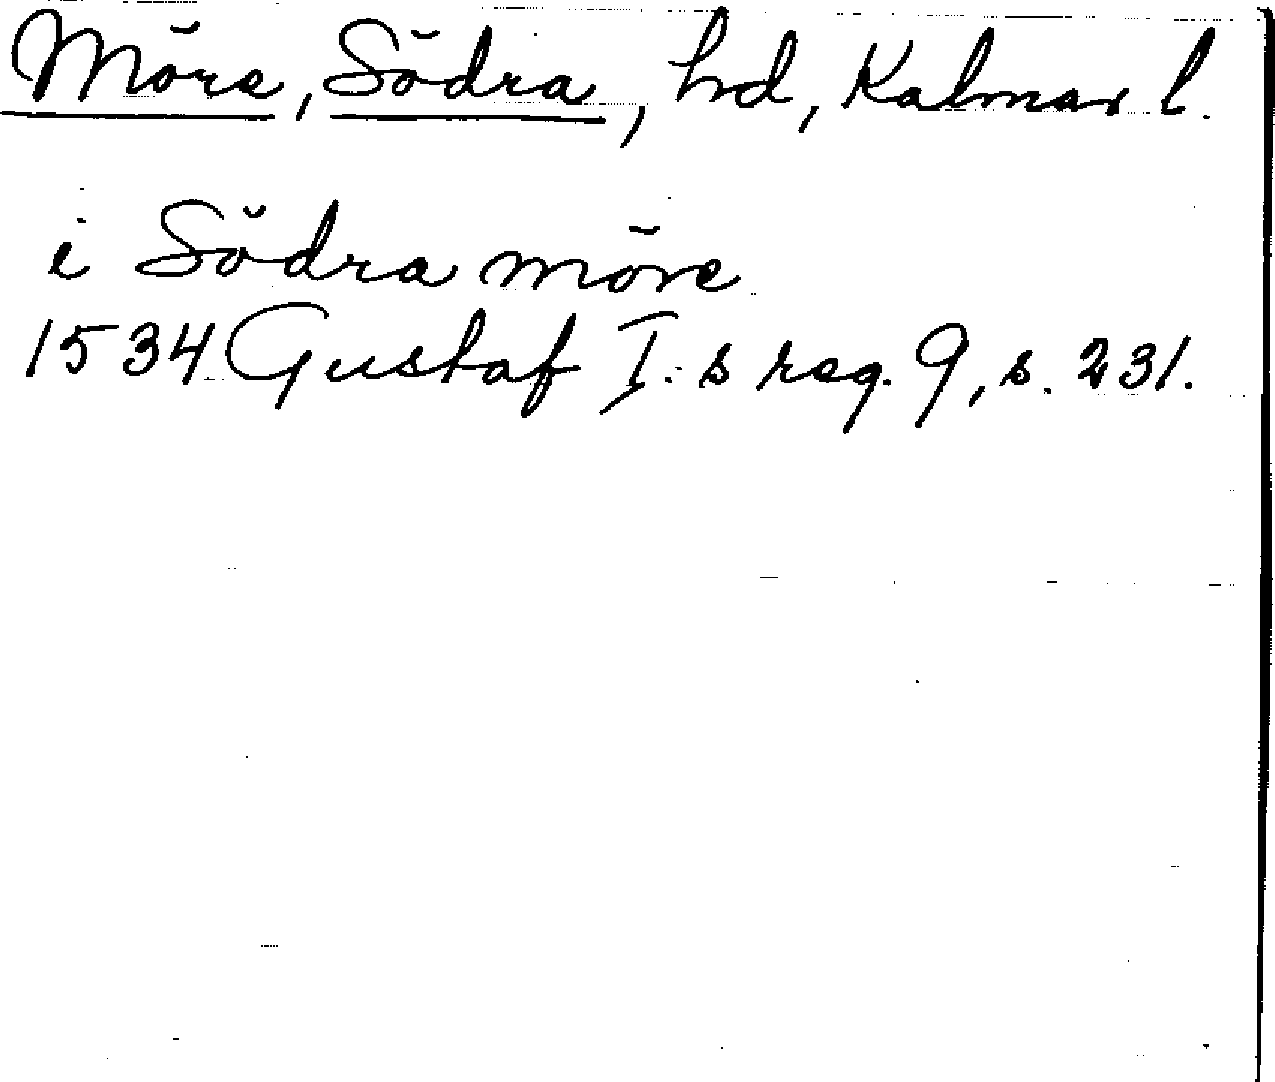 Möre, Södra, hd, Kalmar l.
i Södra möre
1534 Gustaf I:s reg. 9, s. 231.